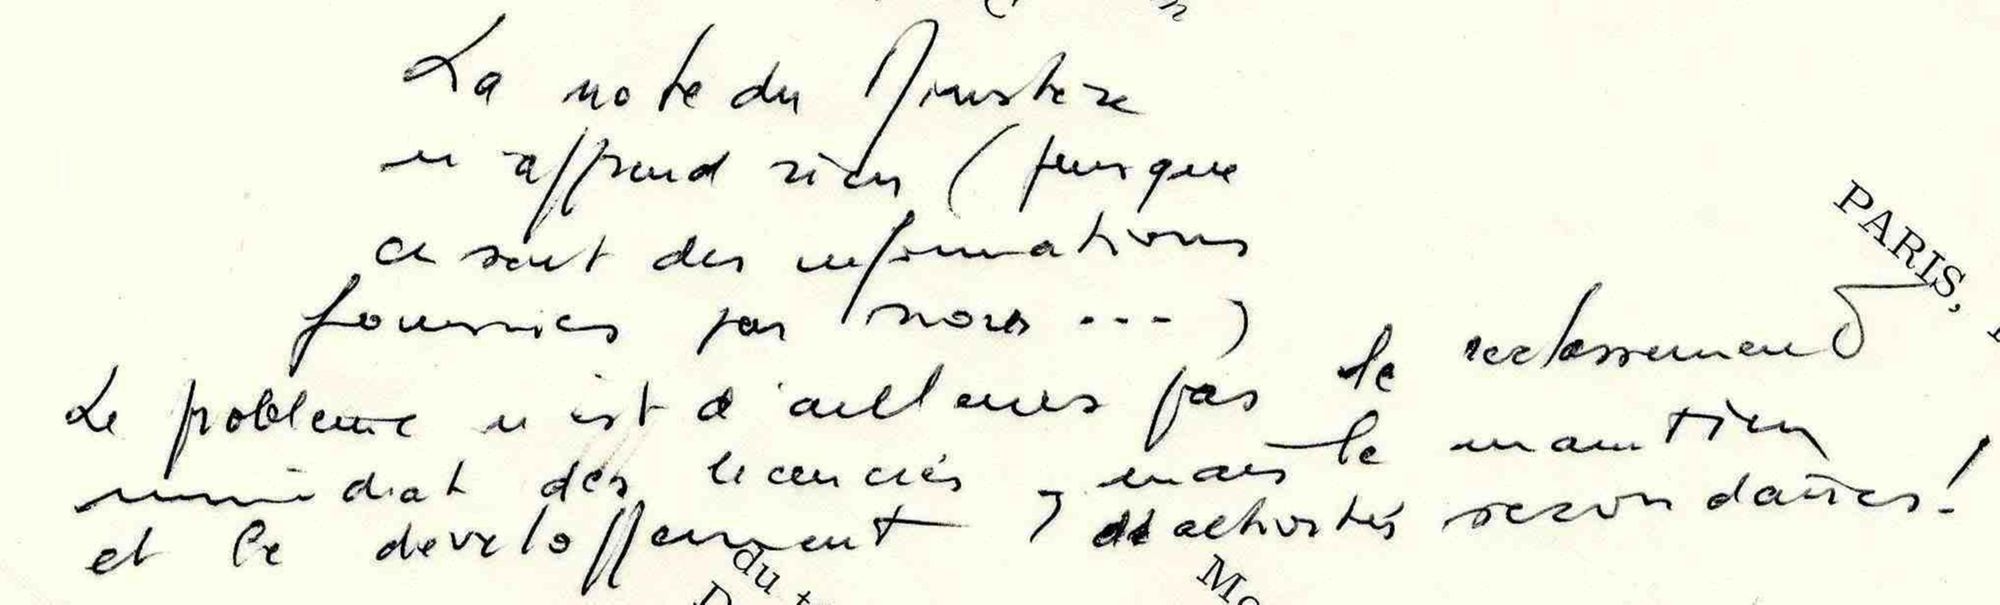 La note du Ministère
n'apprend rien (puisque
ce sont des informations
fournies par nous ---)
Le problème n'est d'ailleurs pas le reclassement
immédiat des licenciés, mais le maintien
et le développement d'activités secondaires!
PARIS,
du
Mo